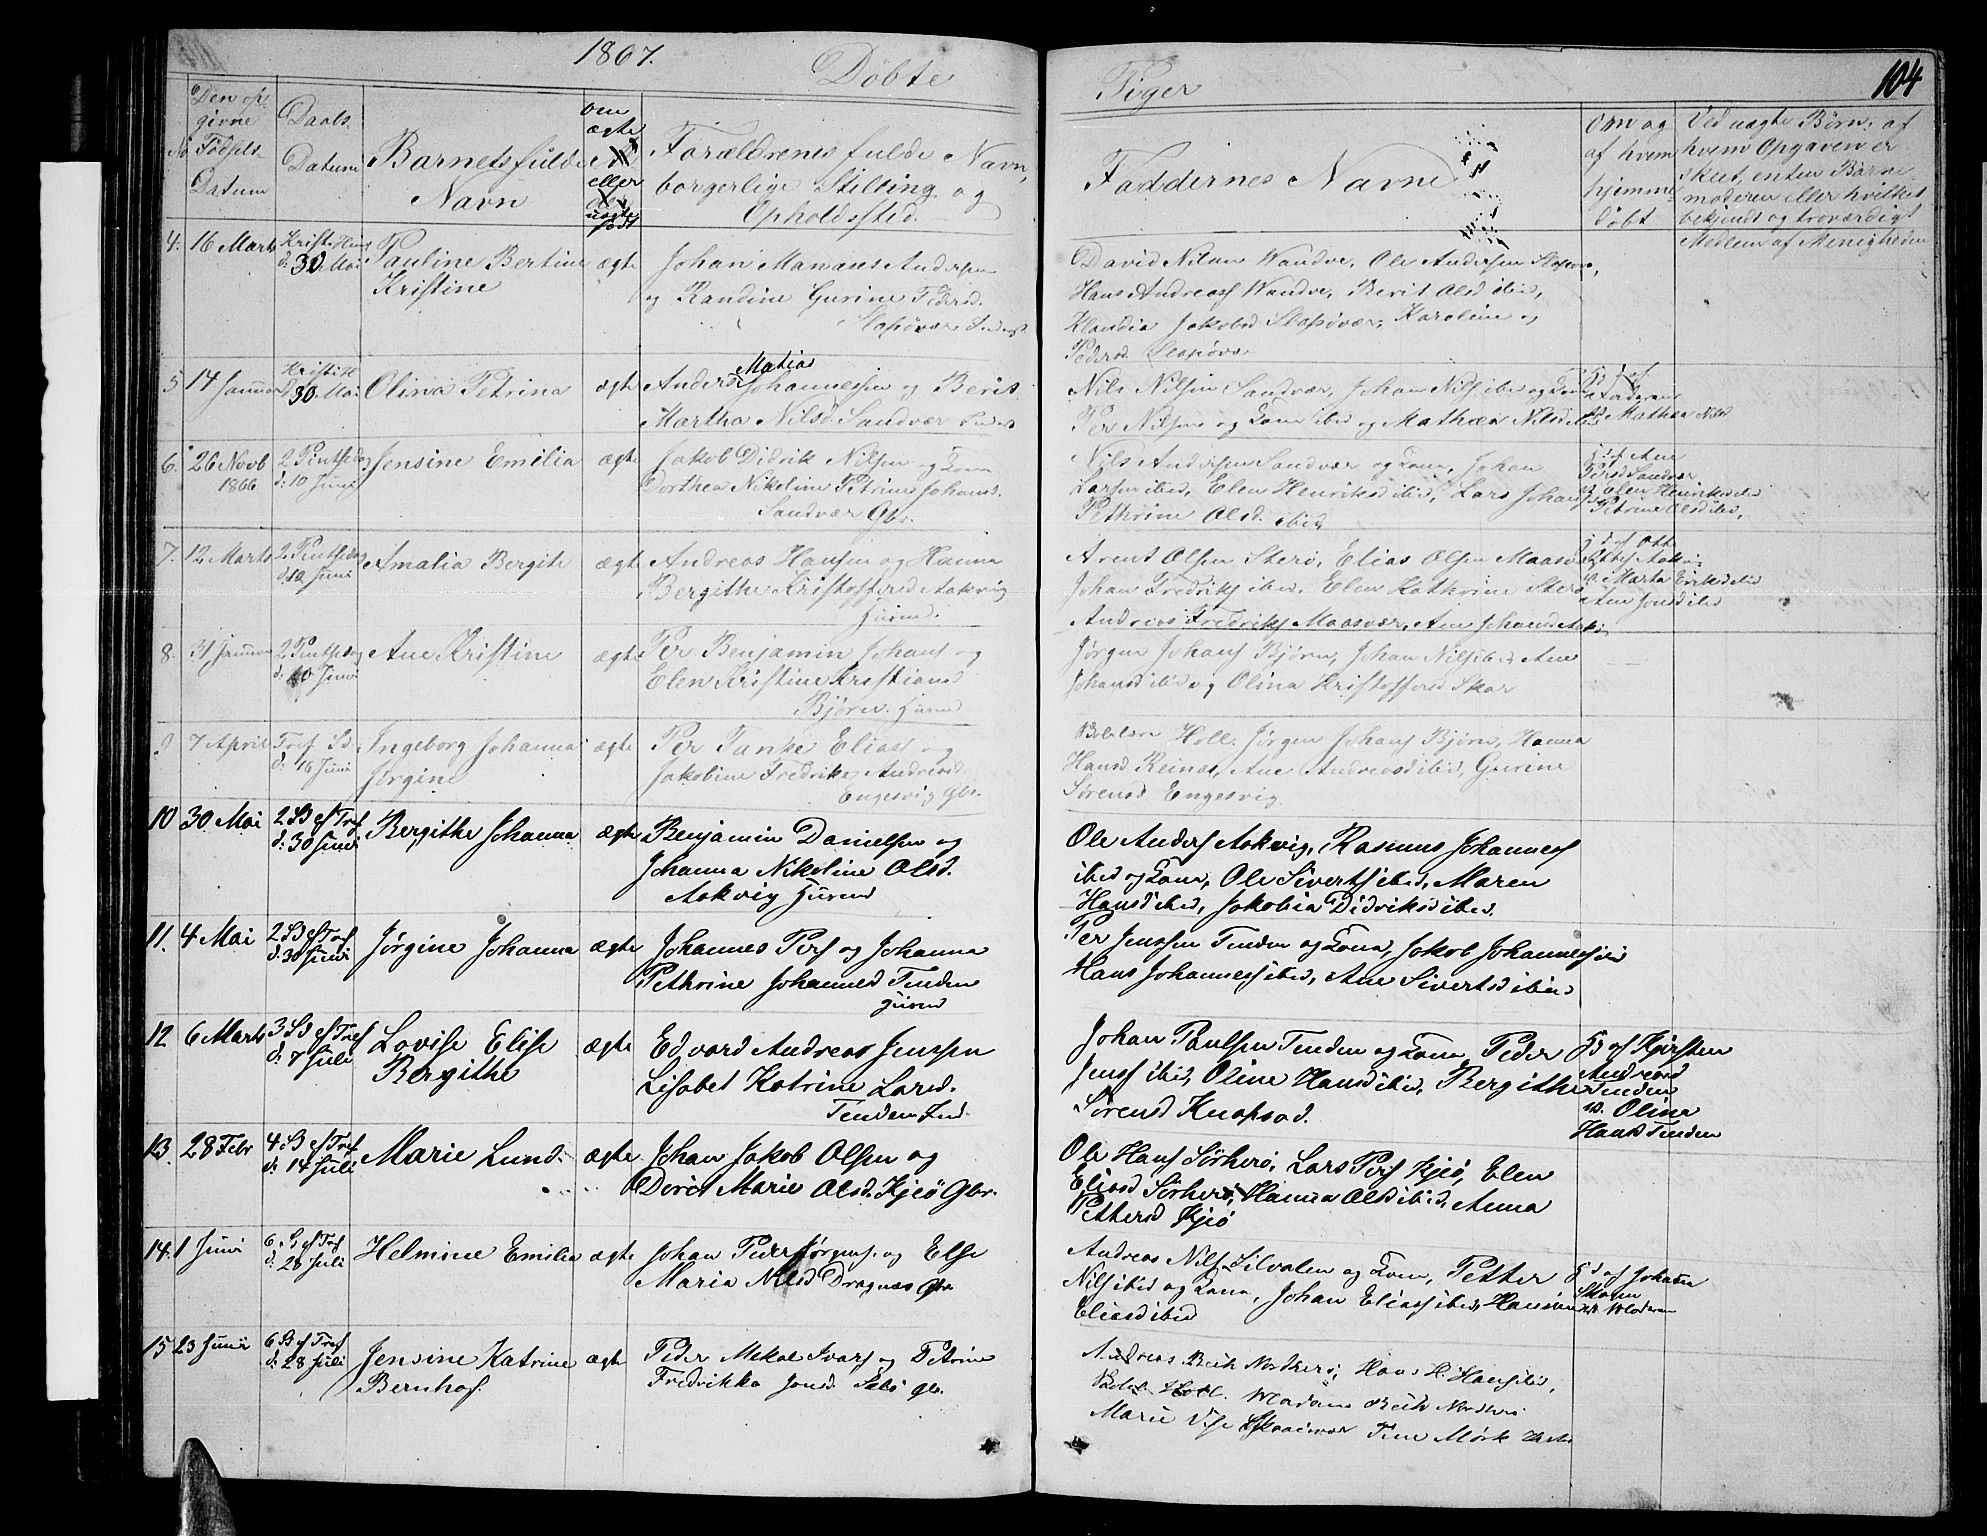 1867.
Døbte
Piger
104
No
Den op
givne
Fødsels
Datum
Daabs
Datum
Barnets fulde
Navn
om
ægte
eller
uægte
født
Forældrenes fulde Navn,
borgerlige Stilling og
Opholdssted.
Faddernes Navne
Om og
af hvem
hjemme
døbt
Ved uægte Børn: af
hvem Opgaven er
skeet, enten Barne
moderen eller hvilket
bekjendt og troværdigt
Medlem af Menigheden
4. 16 Marts
Krist. Him
d: 30 Mai
Pauline Bertine
Kristine
ægte
Johan Manases Andersen
og Randine Gurine Pedersd.
Slapøvær
David Nilsen Wandve, Ole Andersen Slapøvær,
Hans Andreass Wandve, Berit Olsd ibid,
Klaudia Jakobsd Slapøvær, Karoline
Pedersd. Slapøvær
5 14 Januar
Kristi H
30 Mai
Olina Petrina
ægte
Anders Matias Johannessen og Berit
Martha Nilsd. Sandvær
Nils Nilsen Sandvær, Johan Nilss ibid og Kona
Per Nilsen og Kona ibid og Mathea Nilsd ibid
Hjd af
Faderen
Mathea Nilsd
6. 26 Novb
1866
2 Pintsedag
d: 10 Juni
Jensine Emilia
ægte
Jakob Didrik Nilsen og Kona
Dorthea Nikoline Petrine Johansd.
Sandvær Gbr.
Nils Andersen Sandvær og Kona, Johan
Larsen ibid, Elen Henriksd ibid, Lars Johans
Pethrine Olsd. ibid
Hjd af Ane
Persd Sandvær
Elen Henriksd ibid
Petrine Olsd ibid,
7. 12 Marts
2 Pintsedag
d 10 Juni
Amalia Bergite
ægte
Andreas Hansen og Hanna
Bergithe Kristoffersd Aakvig
Huusmd.
Arent Olsen Sterø, Elias Olsen Maasvær,
Johan Fredriks ibid, Elen Kathrine Sterø
Andreas Fredriks Maasvær, Ane Johansd Aakvig
hjd af Ole
Aakvig
Marta Eriksd ibid
Ane Jonsd ibid
8. 31 Januar
2 Pintsedag
d: 10 Juni
Ane Kristine
ægte
Per Benjamin Johans og
Elen Kristine Kristiansd
Bjørn. Huusmd
Jørgen Johans Bjørn, Johan Nilss ibid, Ane
Johansd ibid og Olina Kristoffersd Skar
9 7 April
Tref S
d: 16 Juni
Ingeborg Johanna
Jørgine
ægte
Per Tanke Elias og
Jakobine Fredrike Andreasd.
Engesvig Gbr.
Holl. Jørgen Johans Bjørn, Hanna
Hansd Reinæs, Ane Andreasd ibid, Gurine
Sørensd Engesvig.
10 30 Mai
2 S ef Tref
d: 30 Juni
Bergithe Johanna
ægte
Benjamin Danielsen og
Johanna Nikoline Olsd.
Aakvig Huusmd
Ole Anders Aakvig, Rasmus Johanness
ibid og Kona, Ole Siverts ibid, Maren
Hansd ibid, Jakobia Didriksd ibid.
11. 4 Mai
2 S ef Tref
d: 30 Juni
Jørgine Johanna
ægte
Johannes Pers og Johanna
Pethrine Johannesd Tenden
Huusmd
Per Jenssen Tenden og Kona, Jakob Johanness ibid
Hans Johanness ibid, Ane Sivertsd ibid
12 6 Marts
3 S ef Tref
d: 7 Juli
Lovise Elise
Bergithe
ægte
Edvard Andreas Jenssen
Lisabet Katrine Larsd.
Tenden Ind.
Johan Paulsen Tenden og Kona, Peder
Jenss ibid, Oline Hansd ibid, Bergithe
Sørensd Knapsad.
Hjd af Kjersten
Andreasd
Tenden
Olina
Hansd Tenden
13. 28 Febr
4 S ef Tref
d: 14 Juli
Marie Lund.
ægte
Johan Jakob Olsen og
Doret Marie Olsd. Kjeø Gbr.
Ole Hans Sørherø, Lars Pers Kjeø, Elen
Eliasd Sørherø, Hanna Olsd ibid, Anna
Pettersd Kjeø
14. 1 Juni
6. S ef Tref
d: 28 Juli
Helmine Emilia
ægte
Johan Peder Jørgens. og Else
Maria Nilsd Dragnæs Gbr
Andreas Nilss Silvalen og Kona, Petter
Nilss ibid og Kona, Johan Eliass ibid, Hansine
Eliasd ibid
Hjd af Johan
Moderen
15 23 Juni
6 S ef Tref
d: 28 Juli
Jensine Katrine
Bernhof.
ægte
Peder Mekal Ivars og Petrine
Fredrikka Jonsd. Gbr.
Andreas Beck Nordherø, Hans H. Hans ibid,
Holl. Madame Beck Nordherø
Marie Skaalvær Tine Mørk